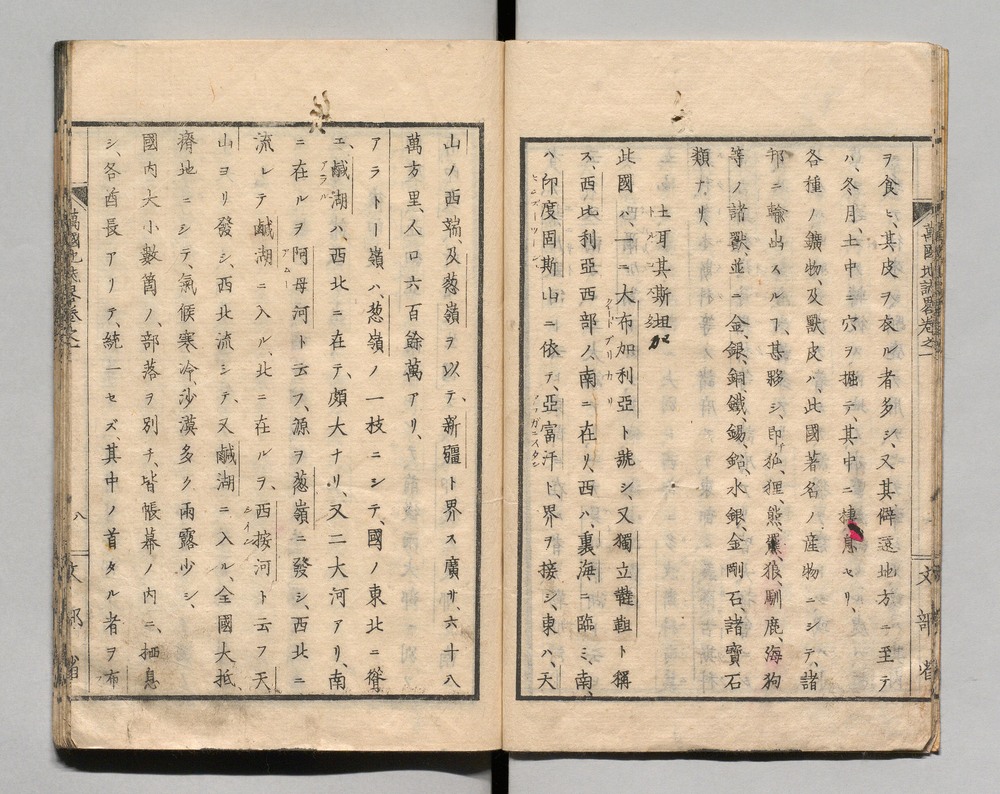 ヲ食ヒ、其皮ヲ衣ル者多シ、又其僻遠地方ニ至テ
ハ、冬月、土中ニ穴ヲ掘テ、其中ニ棲息セリ、
各種ノ鑛物、及獸皮ハ、此國著名ノ産物ニシテ、諸
邦ニ輸出スルヿ、甚夥シ、即狐、狸、熊、羆、狼、馴鹿、海狗
等ノ諸獸、並ニ金、銀、銅、鐵、錫、鉛、水銀、金剛石、諸寶石
類ナリ、
土耳其斯坦
此國ハ一ニ大布加利亞ト號シ、又獨立韃靼ト稱
ス、西比利亞西部ノ南ニ在リ、西ハ、裏海ニ臨ミ、南
ハ印度固斯山ニ依テ、亞富汗ト、界ヲ接シ、東ハ、天
萬國地誌畧卷之一
文部省
山ノ西端、及葱嶺ヲ以テ、新疆ト界ス廣サ、六十八
萬方里、人口六百餘萬アリ、
アラトー嶺ハ、葱嶺ノ一枝ニシテ、國ノ東北ニ聳
エ、鹹湖ハ、西北ニ在テ、頗大ナリ、又二大河アリ、南
アラル
ニ在ルヲ阿母河ト云フ、源ヲ葱嶺ニ發シ、西北ニ
アムー
流レテ鹹湖ニ入ル、北ニ在ルヲ、西按河ト云フ天
山ヨリ發シ、西北流シテ、又鹹湖ニ入ル、全國大抵
瘠地ニシテ、氣候寒冷、沙漠多ク、雨露少シ、
國内大小數箇ノ、部落ヲ別チ、皆帳幕ノ内ニ、栖息
シ、各酋長アリテ、統一セズ、其中ノ首タル者ヲ布
萬國地誌畧卷之一
八
文部省